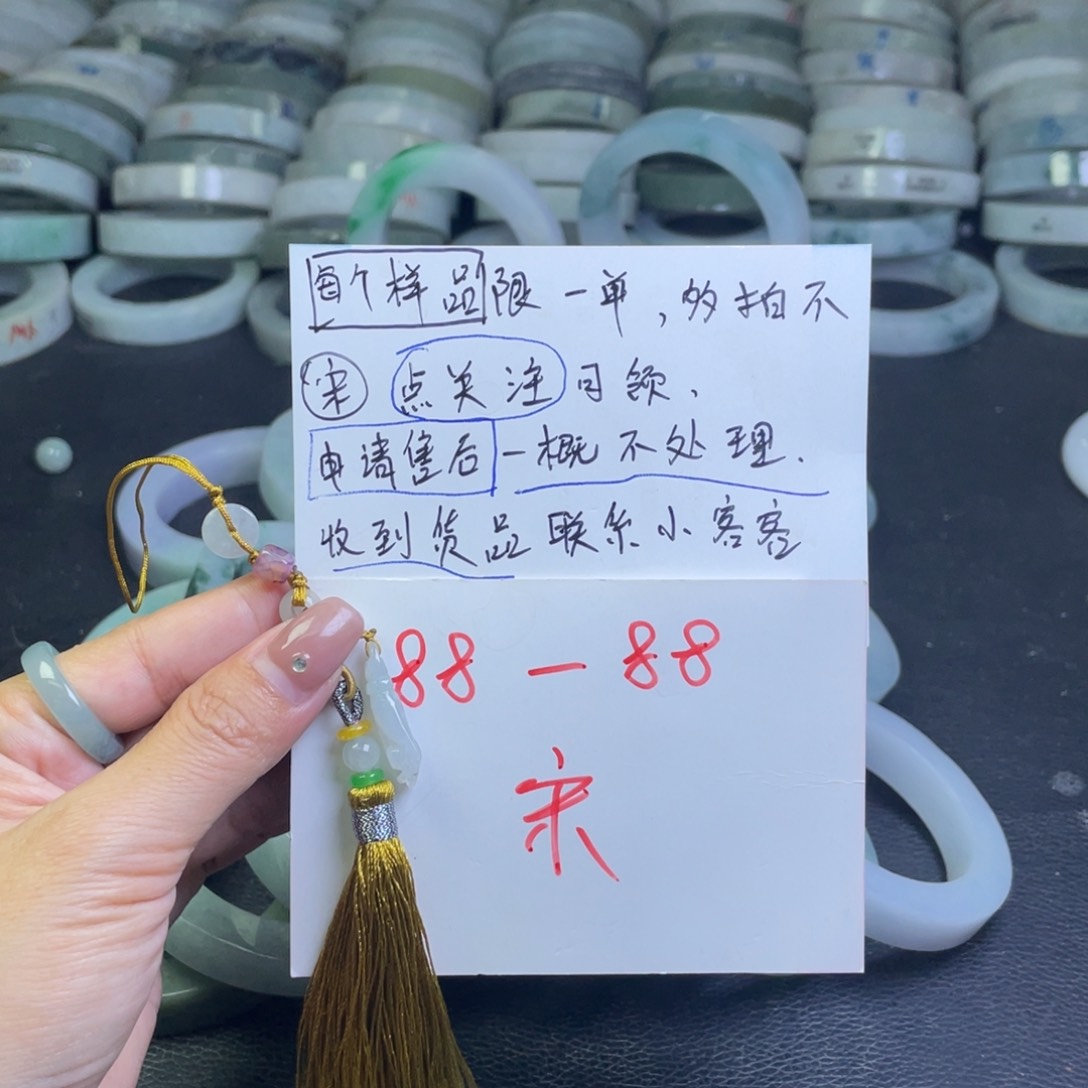 每个样品限一单,多拍不
宋 点关注 司领、
申请售后一概不处理.
收到货品联系小客客
88 — 88
宋